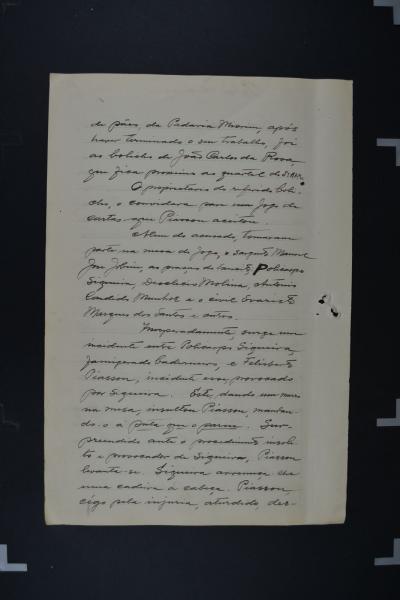 de pães, da Padaria Mimim, após
haver terminado o seu trabalho, foi
ao boliche de João Carlos da Rosa,
que fica proximo ao quartel do
O proprietario do referido boli-
che, o convidara para um jogo de
cartas que Piasson aceitou.
Alem do acusado, tomaram
parte na mesa de jogo, o sargento Manoel
José as praças do Policarpo
Siqueira, Molina, Antonio
Candido Munhoz e o civil Evaristo
Marques dos Santos e outros.
Inesperadamente, surge um
incidente entre Policarpo Siqueira,
famigerado baderneiro, e Felisberto
Piasson, incidente esse, provocado
por Siqueira. Este, dando um murro
na mesa, insultou Piasson, mandan-
do-o a puta que o pariu. Sur-
preendido ante o procedimento insoli-
to e provocador de Siqueira, Piasson
levanta-se. Siqueira arremeça-lhe
uma cadeira á cabeça. Piasson,
cégo pela injuria, aturdido, des-